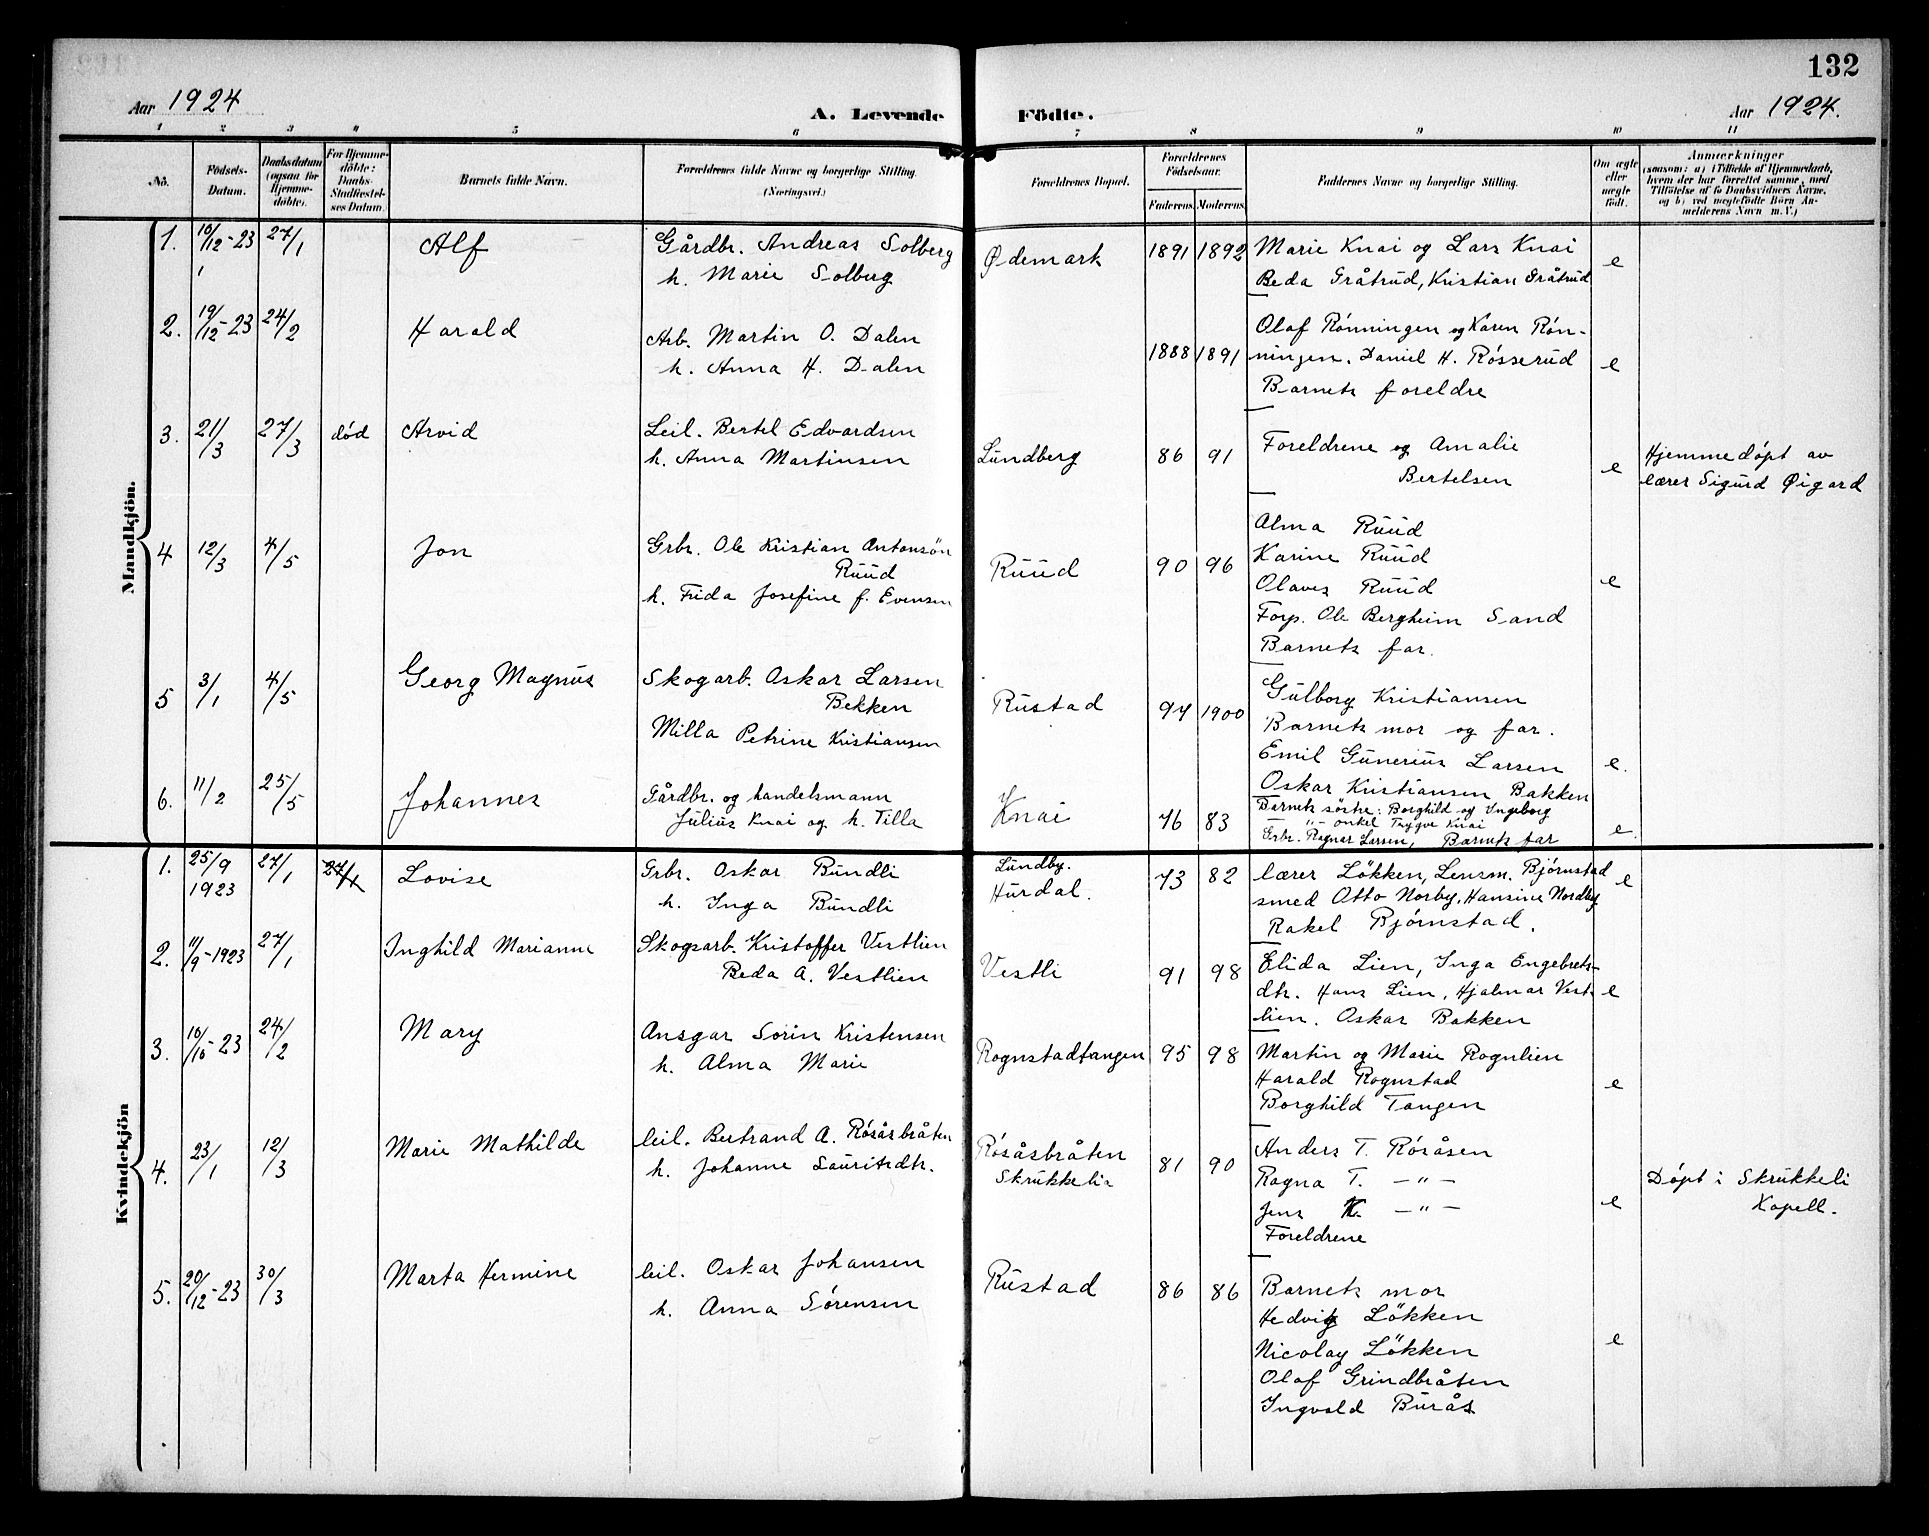 132
Aar 1924
A. Levende Födte.
Aar 1924.
1 2 3 4 5 6 7 8 9 10 11
No.
Födsels-Datum.
Daabsdatum (ogsaa for Hjemme-döbte).
For Hjemme-döbte: Daabs-Stadfæstel-ses Datum.
Barnets fulde Navn.
Forældrenes fulde Navne og borgerlige Stilling. (Næringsvei.)
Forældrenes Bopæl.
Forældrenes Födselsaar.
Faderens Moderens
Faddernes Navne og borgerlige Stilling.
Om ægte eller uægte födt.
Anmærkninger
(saasom: a) i Tilfælde af Hjemmedaab, hvem der har forrettet samme, med Tilföielse af to Daabsvidners Navne, og b) ved uægtefödte Börn Anmelderens Navn m. V.)
Mandkjön.
1. 16/12-23 27/1 Alf Gårdbr. Andreas Solberg Ødemark 1891 1892 Marie Knai og Lars Knai e
h. Marie Solberg Beda Gråtrud, Kristian Gråtrud
2. 19/12-23 24/2 Harald Arb. Martin O. Dalen 1888 1891 Olaf Rønningen og Karen Røn-
h. Anna H. Dalen ningen. Daniel H. Røsserud e
Barnets foreldre
3. 21/3 27/3 død Arvid Leil. Bertel Edvardsen Lundberg 86 91 Foreldrene og Amalie e Hjemmedøpt av
h. Anna Martinsen Bertelsen lærer Sigurd Øigard
4 12/3 4/5 Jon Grbr. Ole Kristian Antonsön Ruud 90 96 Alma Ruud
Ruud Karine Ruud e
h. Frida Josefine f. Evensen Olaves Ruud
Forp. Ole Bergheim Sand
Barnets far.
5 3/1 4/5 Georg Magnus Skogarb. Oskar Larsen Rustad 94 1900 Gulborg Kristiansen
Bekken Barnets mor og far.
Milla Petrine Kristiansen Emil Gunerius Larsen e.
Oskar Kristiansen Bakken
6. 11/2 25/5 Johannes Gårdbr. og handelsmann Knai 76 83 Barnets søstre: Borghild og Ingeborg
Julius Knai og h. Tilla -"- onkel Trygve Knai e
Grbr. Ragnar Larsen, Barnets far
Kvindekjön
1. 25/9 1923 27/1 27/1 Lovise Grbr. Oskar Bundli Lundby. Hurdal. 73 82 lærer Lökken, Lensm. Bjørnstad e
h. Inga Bundli smed Otto Norby, Hansine Nordby
Rakel Bjørnstad.
2. 11/9-1923 27/1 Inghild Marianne Skogsarb. Kristoffer Vestlien Vestli 91 98 Elida Lien, Inga Engebrets-
Beda A. Vestlien dtr. Hans Lien, Hjalmar Vest- e
lien. Oskar Bakken
3. 16/10-23 24/2 Mary Ansgar Sörin Kristensen Rognstadtangen 95 98 Martin og Marie Rognlien
h. Alma Marie Harald Rognstad e
Borghild Tangen
4. 23/1 12/3 Marie Mathilde leil. Bertrand A. Røsåsbråten Røsåsbråten 81 90 Anders T. Røråsen
h. Johanne Lauritzdtr. Skrukkelia Ragna T. -"- Døpt i Skrukkeli
Jens K. -"- e Kapell.
Foreldrene
5. 20/12-23 30/3 Marta Hermine leil. Oskar Johansen Rustad 86 86 Barnets mor
h. Anna Sørensen Hedvig Lökken
Nicolay Lökken e
Olaf Grindbråten
Ingvald Burås